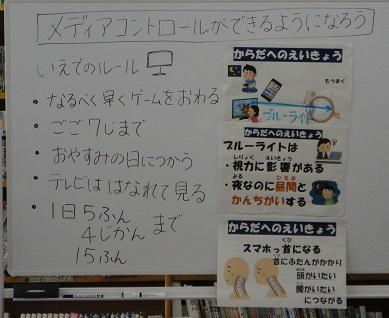 メディアコントロールができるようになろう
いえでのルール
・なるべく早くゲームをおわる
・ごご7じまで
・おやすみの日につかう
・テレビははなれて見る
・1日5ふん
4じかんまで
15ふん
からだへのえいきょう
もうまく
ブルーライト
からだへのえいきょう
ブルーライトは
・視力に影響がある
しりょく えいきょう
・夜なのに昼間と
よる ひるま
かんちがいする
からだへのえいきょう
スマホっ首になる
くび
首にふたんがかかり
頭がいたい
腕がいたい
につながる